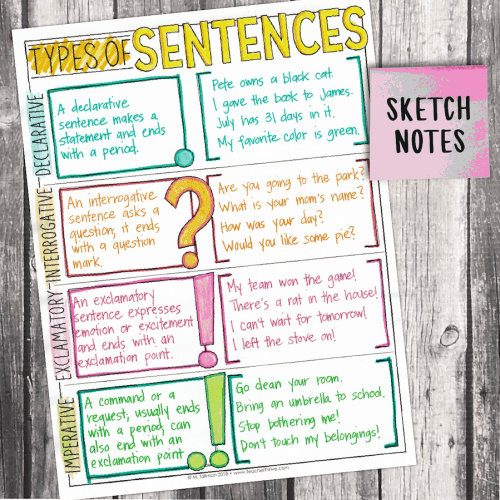 TYPES OF SENTENCES
DECLARATIVE
A declarative
sentence makes a
statement and ends
with a period.
Pete owns a black cat.
I gave the book to James.
July has 31 days in it.
My favorite color is green.
SKETCH
NOTES
INTERROGATIVE
An interrogative
sentence asks a
question, it ends
with a question
mark.
?
Are you going to the park?
What is your mom's name?
How was your day?
Would you like some pie?
EXCLAMATORY
An exclamatory
sentence expresses
emotion or excitement
and ends with an
exclamation point.
!
My team won the game!
There's a rat in the house!
I can't wait for tomorrow!
I left the stove on!
IMPERATIVE
A command or a
request, usually ends
with a period, can
also end with an
exclamation point
!.
Go clean your room.
Bring an umbrella to school.
Stop bothering me!
Don't touch my belongings!
© M. Tallman 2018 • www.teacherthrive.com